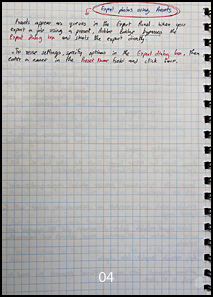 Export photos using Presets
Presets appear as queues in the Export Panel when you
export a file using a preset, Adobe Bridge bypasses the
Export dialog box and starts the export directly.
- To reuse settings, specify options in the Export dialog box, then
enter a name in the Preset Name field and click Save.
04